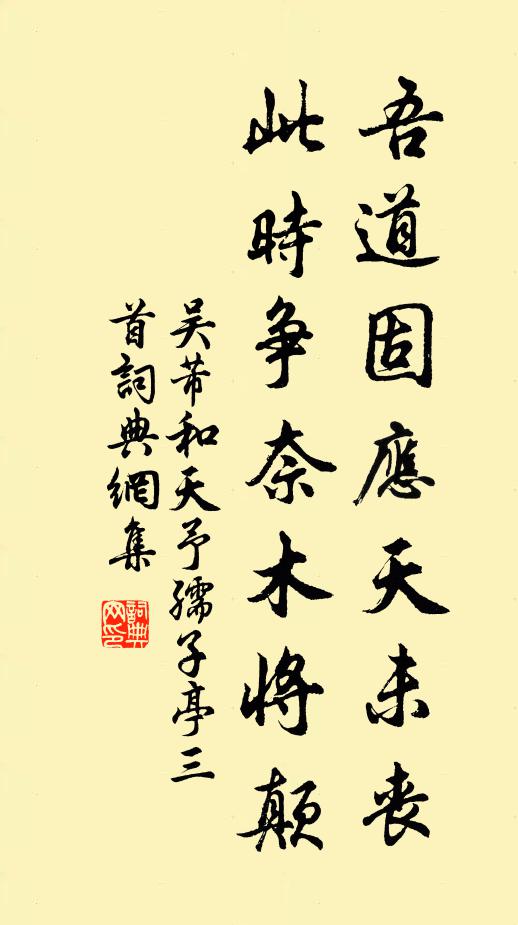 吾道固應天未喪
此時争奈木將顛
吴芾和天予孺子亭三
首詞典網集
詞典网印